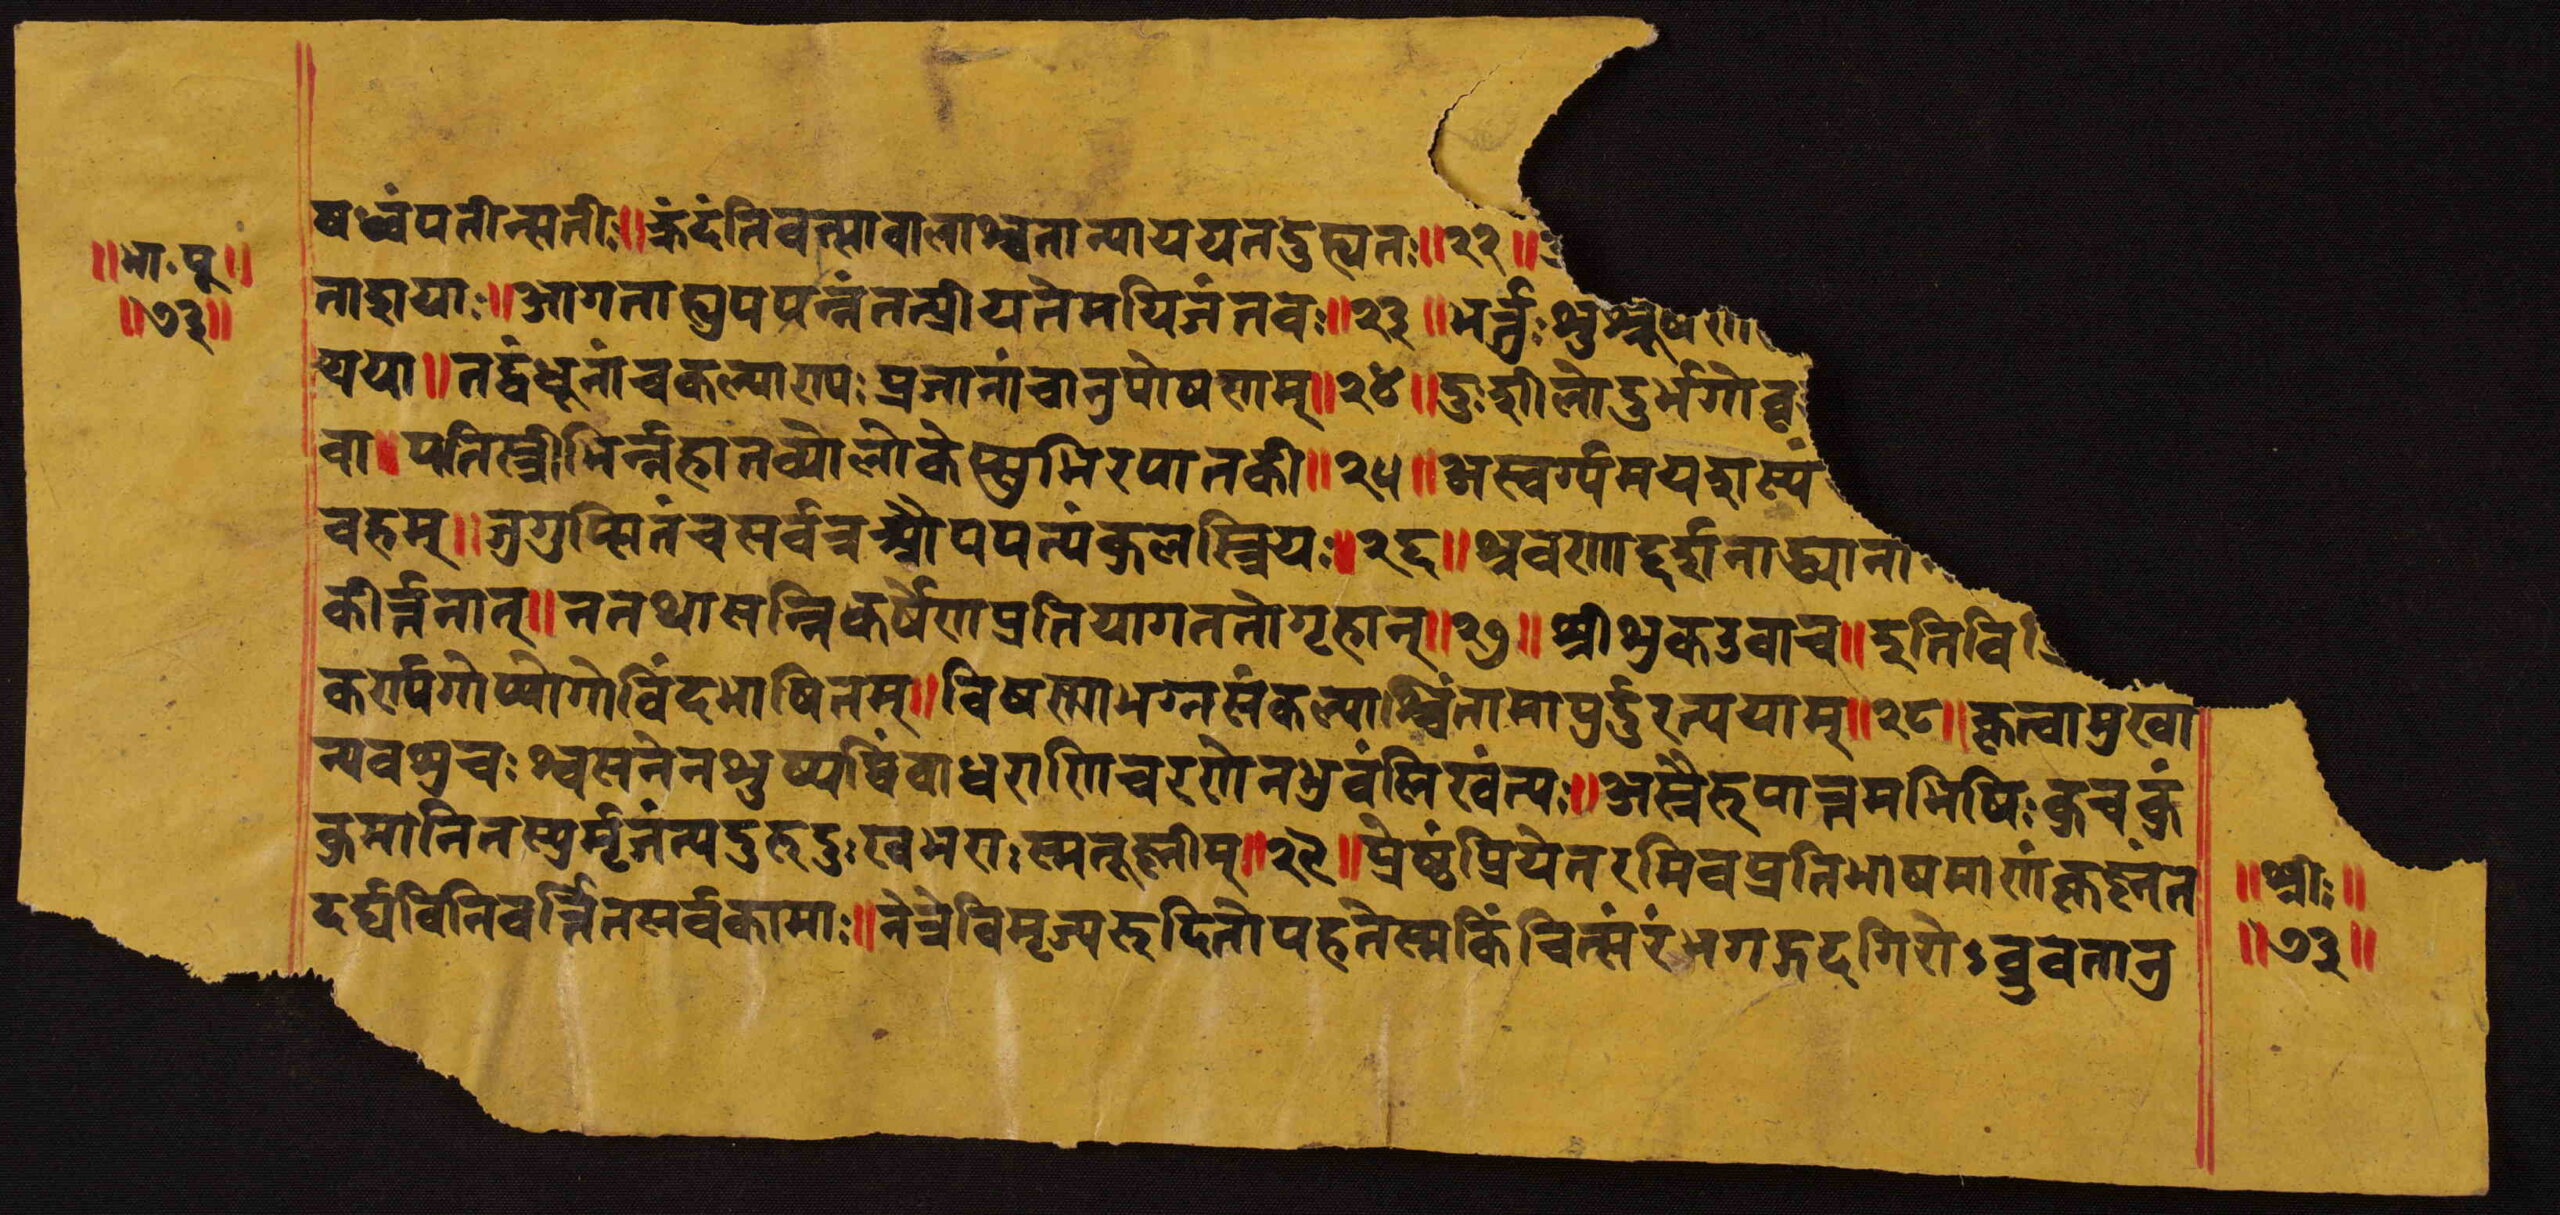 ॥भा॰पू॥
॥७३॥
षध्वंपतीन्सतीः॥क्रंदंतिवत्सावालाश्चतान्पाययतदुह्यतः॥२२॥
ताशयाः॥आगताह्युपपन्नंतत्प्रीयतेमयिजंतवः॥२३॥भर्त्तुःशुश्रूषणा
यया॥तद्वंधूनांचकल्याणपःप्रजानांचानुपोषणम्॥२४॥दुःशीलोदुर्भगोवृ
वा॥पतिस्त्रीभिर्न्नहातव्योलोकेस्पुभिरपातकी॥२५॥अस्वर्ग्यमयशस्यं
वहम्॥जुगुप्सितंचसर्वत्रऔपपत्यंकुलस्त्रियः॥२६॥श्रवणाद्दर्शनाद्ध्याना
कीर्त्तनात्॥नतथासन्निकर्षेणप्रतियागततोगृहान्॥२७॥श्रीशुकउवाच॥इतिवि
कर्ण्यगोप्योगोविंदभाषितम्॥विषण्णाभग्नसंकल्पाश्चिंतामापुर्द्दुरत्ययाम्॥२८॥कृत्वामुखा
न्यवशुचःश्वसनेनशुष्यद्विंवाधराणिचरणेनभुवंलिखंत्यः॥अस्रैरुपात्तमभिषिःकुचकुं
कुमानितस्थुर्मृजंत्यदुरुदुःखभराःस्मतूष्णीम्॥२९॥प्रेष्ठंप्रियेतरमिवप्रतिभाषमाणंकृष्णंत
दर्थविनिवर्त्तितसर्वकामाः॥नेत्रेविमृज्यरुदितोपहतेस्मकिंचित्संरंभगद्गदगिरोऽव्रुवतानु
॥श्रीः॥
॥७३॥